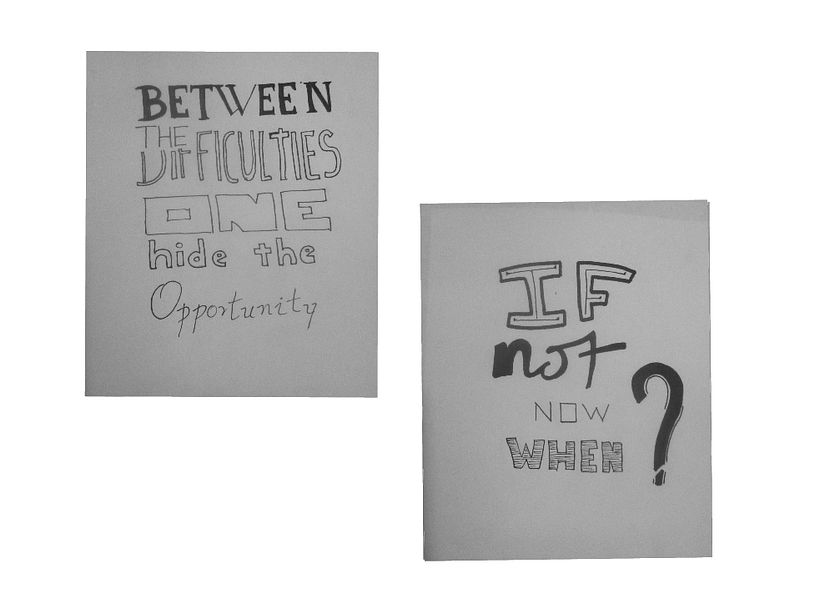 BETWEEN
THE
DIFFICULTIES
ONE
hide the
Opportunity
IF
not
NOW
WHEN ?